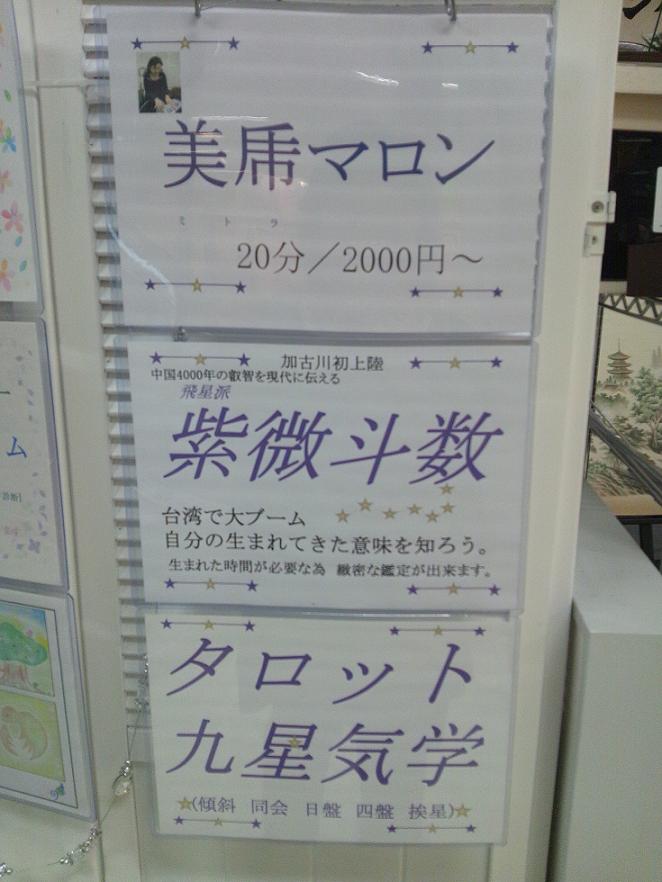 美帋マロン
ミトラ
20分／2000円～
加古川初上陸
中国4000年の叡智を現代に伝える
飛星派
紫微斗数
台湾で大ブーム
自分の生まれてきた意味を知ろう。
生まれた時間が必要な為 緻密な鑑定が出来ます。
タロット
九星気学
(傾斜 同会 日盤 四盤 挨星)
ム
診断]